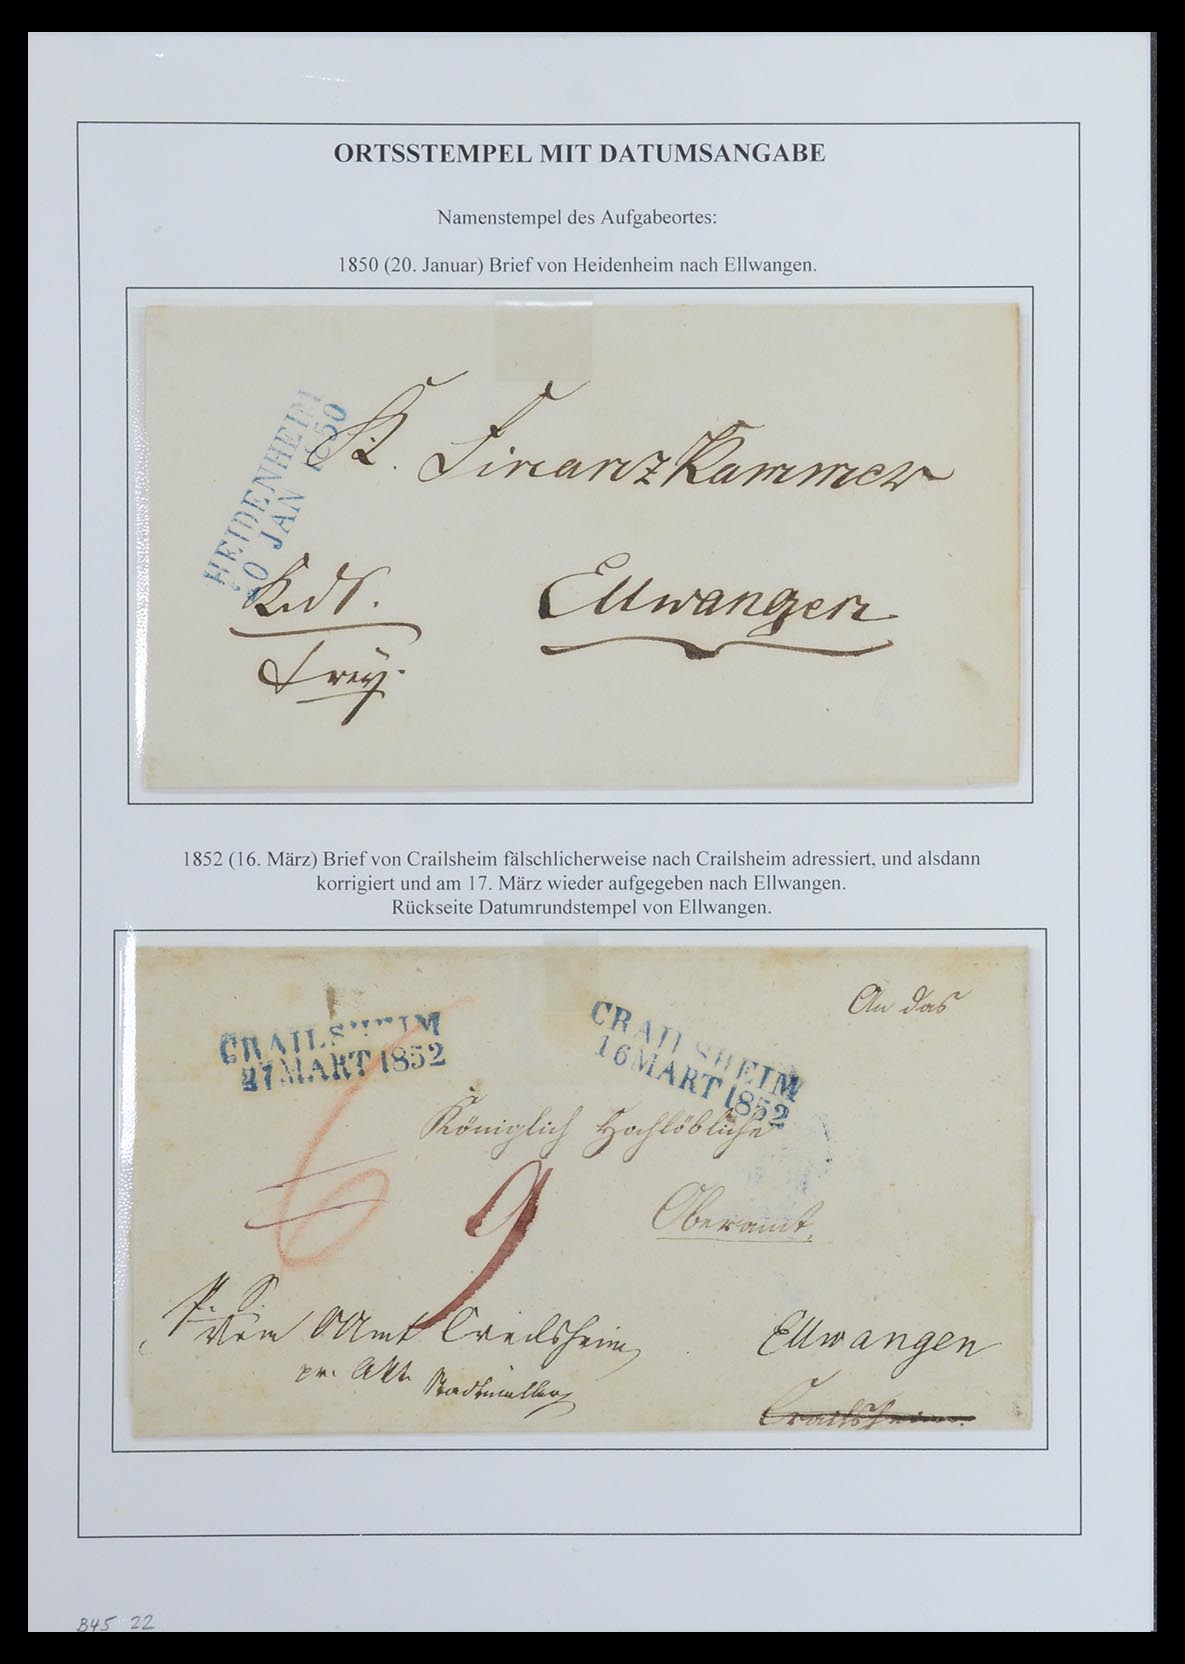 ORTSSTEMPEL MIT DATUMSANGABE
Namenstempel des Aufgabeortes:
1850 (20. Januar) Brief von Heidenheim nach Ellwangen.
HEIDENHEIM
0 JAN 1850
K. Finanz Kammer
Ellwangen
Frey.
1852 (16. März) Brief von Crailsheim fälschlicherweise nach Crailsheim adressiert, und alsdann
korrigiert und am 17. März wieder aufgegeben nach Ellwangen.
Rückseite Datumrundstempel von Ellwangen.
CRAILSHEIM
MART 1852
CRAILSHEIM
16 MART 1852
An das
Königlich Hochlöbliche
6
9
Oberamt.
P. S.
Vom Amt Crailsheim
Ellwangen
Crailsheim.
B45 22